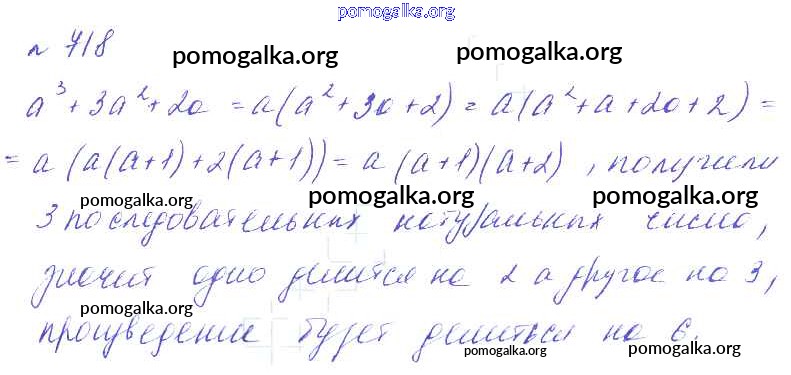 pomogalka.org
№ 718
pomogalka.org pomogalka.org
a³ + 3a² + 2a = a(a² + 3a + 2) = a(a² + a + 2a + 2) =
= a(a(a+1) + 2(a+1)) = a(a+1)(a+2), получили
pomogalka.org pomogalka.org pomogalka.org
3 последовательных натуральных числа,
значит одно делится на 2 а другое на 3,
pomogalka.org
произведение будет делиться на 6.
pomogalka.org pomogalka.org